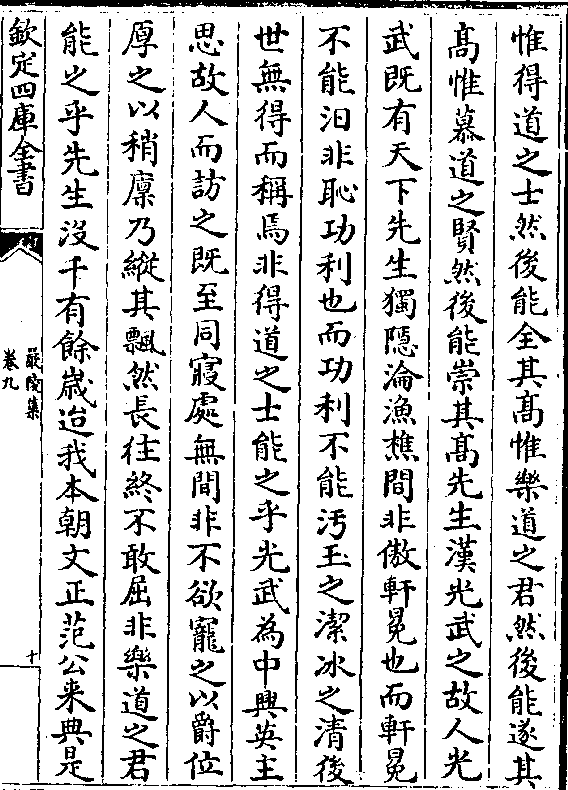 惟得道之士然後能全其髙惟樂道之君然後能遂其
髙惟慕道之賢然後能崇其髙先生漢光武之故人光
武既有天下先生獨隱淪漁樵間非傲軒冕也而軒冕
不能汨非恥功利也而功利不能汚玉之潔冰之清後
世無得而稱焉非得道之士能之乎光武為中興英主
思故人而訪之既至同寢處無間非不欲寵之以爵位
厚之以稍廩乃縱其飄然長往終不敢屈非樂道之君
能之乎先生沒千有餘嵗迨我本朝文正范公来典是
欽定四庫全書
嚴陵集
卷九
十